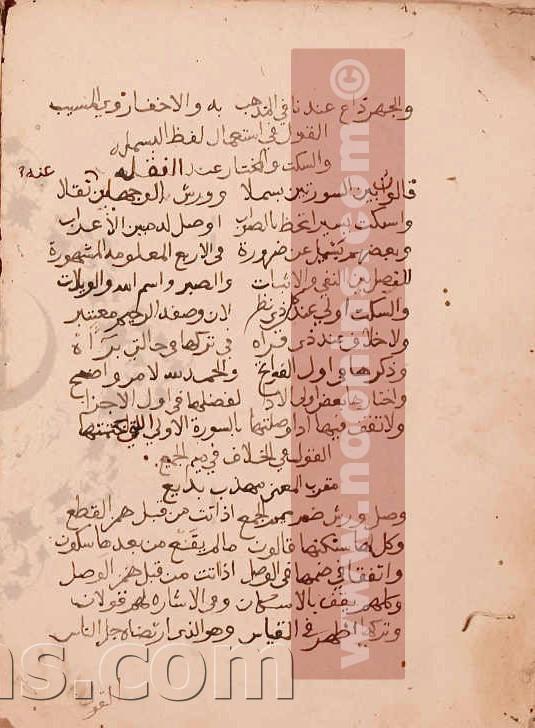 والجهر ذاع عندنا في المذهب به والاخفا روى المسيب
القول في استعمال لفظ البسمله
والسكت والمختار عند النقله
قالون بين السورتين بسملا وورش الوجهان عنه نقلا
واسكت يسيرا تحظ بالصواب اوصل له مبين الاعراب
وبعضهم بسمل عن ضرورة في الاربع المعلومه المشهورة
للفصل بين النفي والاثبات والصبر واسم الله والويلات
والسكت اولى عند كل ذي نظر لان وصفه الرحيم معتبر
ولا خلاف عند ذي قراه في تركها في حالتي براة
وذكرها في اول الفواتح والحمد لله لامر واضح
واختارها بعض اولي الادا لفضلها في اول الاجزا
ولا تقف فيها اذا وصلتها بالسورة الاولى التي ختمتها
القول في الخلاف في ميم الجميع
مقرب المعنى مهذب بديع
وصل ورش ضم ميم الجمع اذا اتت من قبل همز القطع
وكلها سكنها قالون ما لم يقع من بعدها سكون
واتفقا في ضمها في الوصل اذا اتت من قبل همز الوصل
وكلهم يقف بالاسكان وفي الاشارة لهم قولان
وتركها اظهر في القياس وهو الذي ارتضاه جل الناس
القول
www.noonline.com
©
ns.com